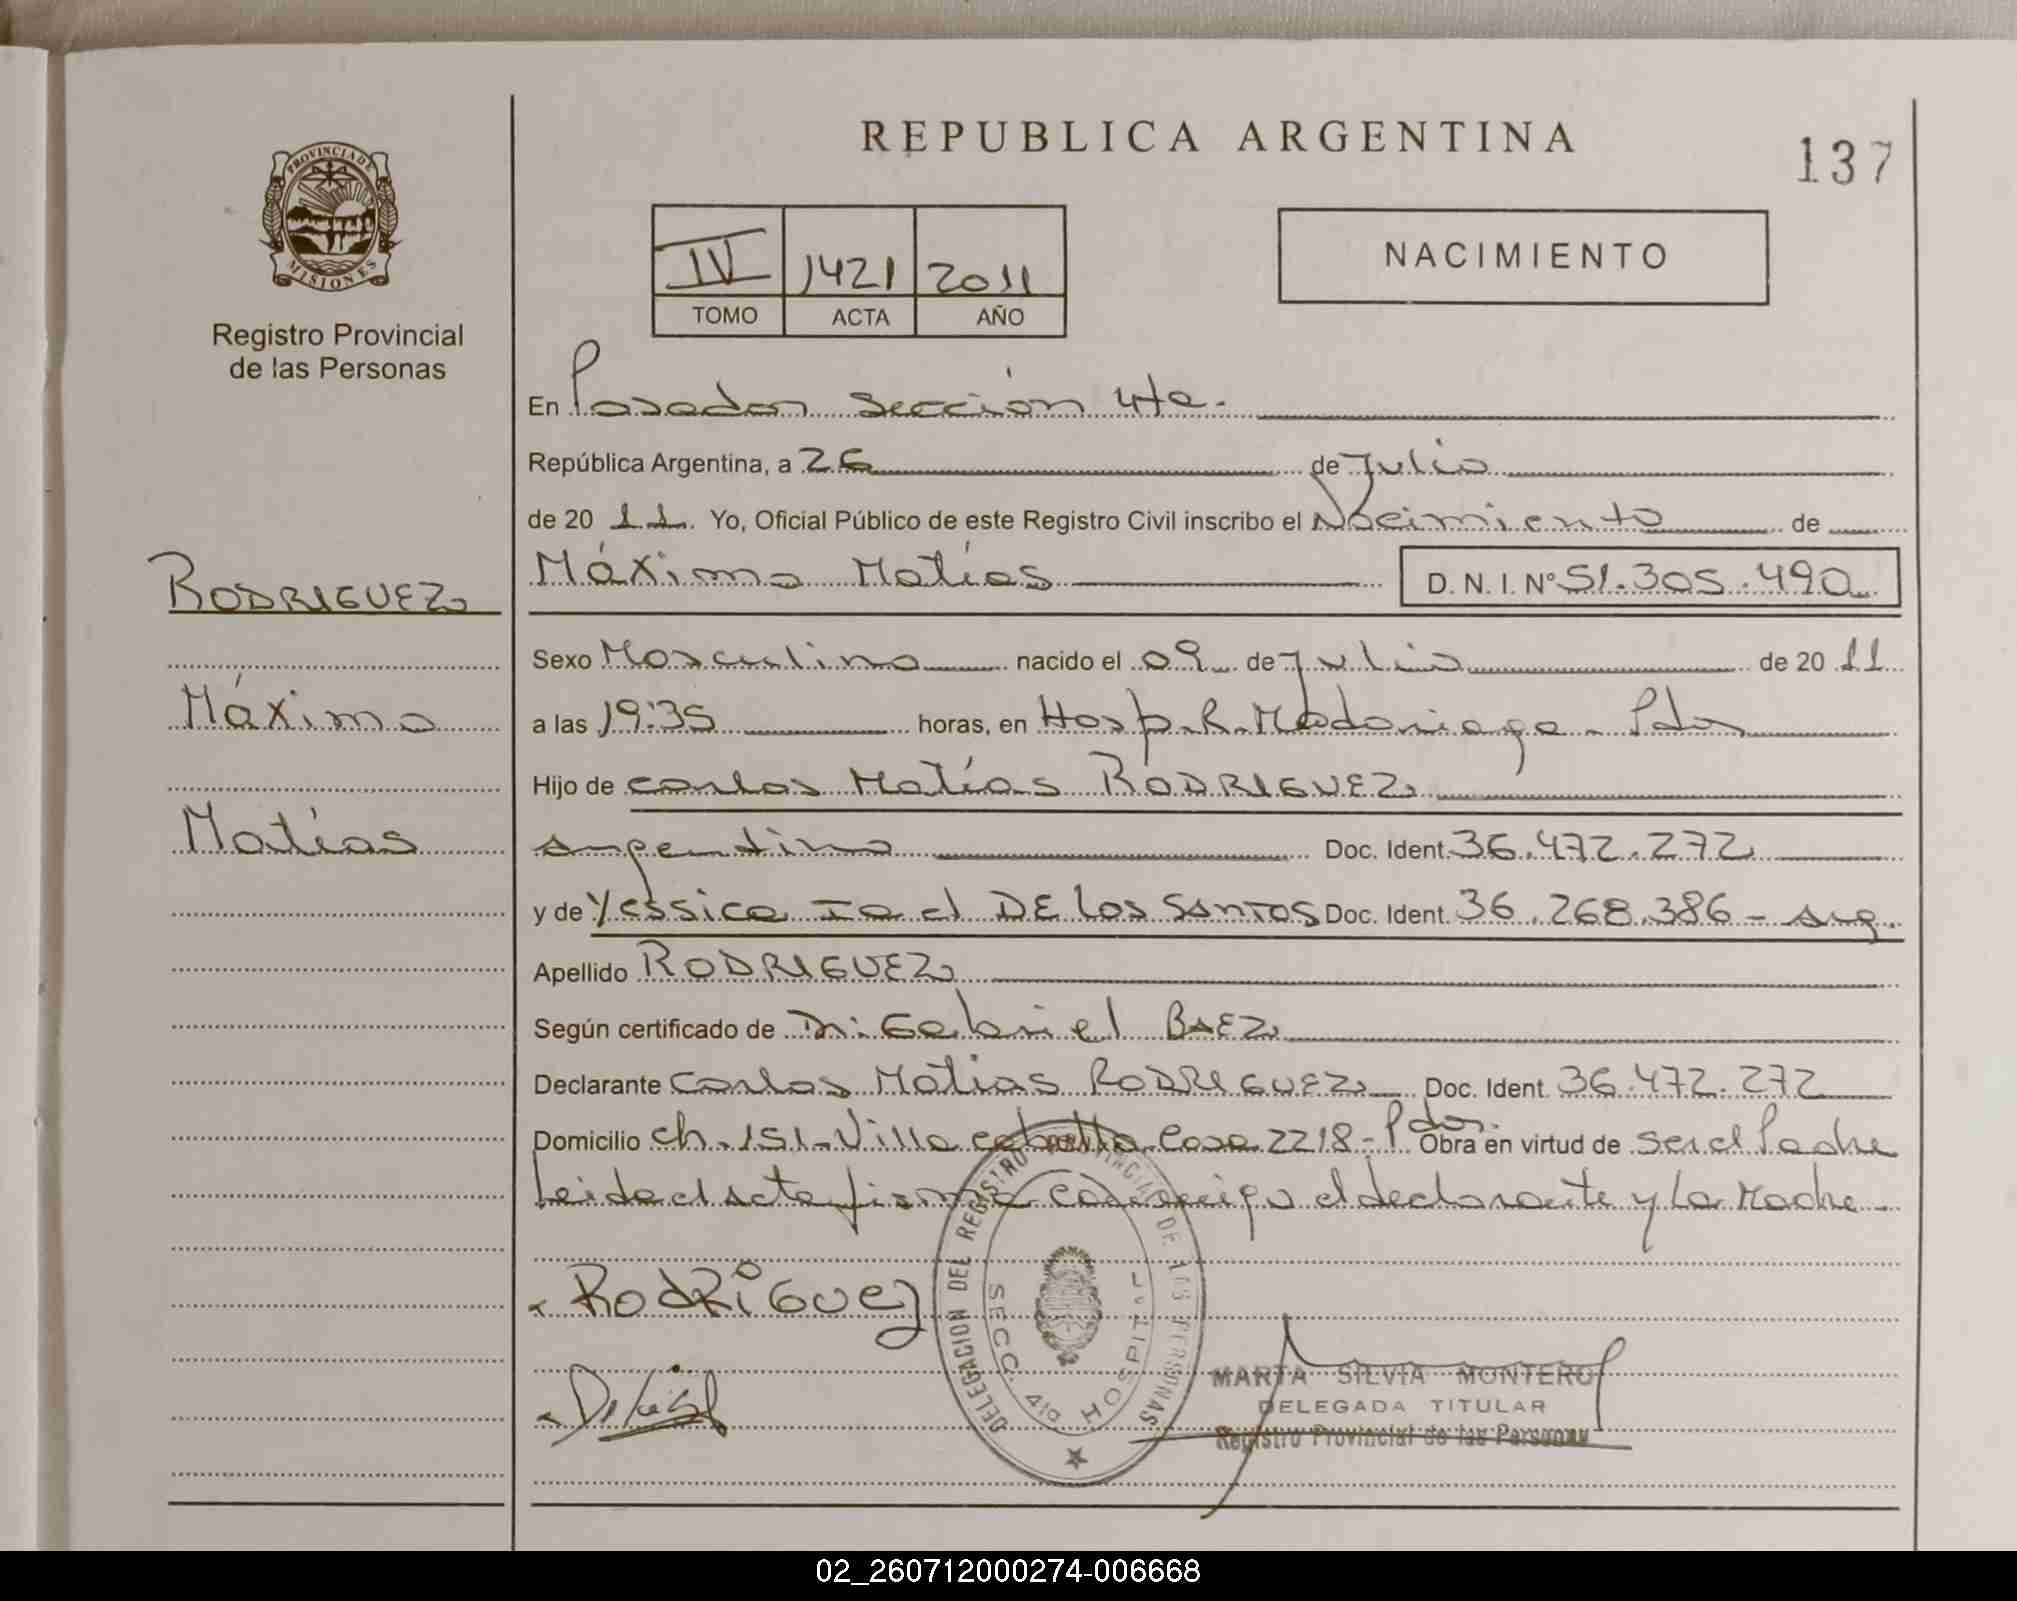 REPUBLICA ARGENTINA
137
PROVINCIA DE
MISIONES
Registro Provincial
de las Personas
IV 1421 2011
TOMO ACTA AÑO
NACIMIENTO
En Posadas sección 4ta.
República Argentina, a 26 de Julio
de 20 11. Yo, Oficial Público de este Registro Civil inscribo el Nacimiento de
Máximo Matías D. N. I. N° 51.305.490
RODRIGUEZ
Máximo
Matías
Sexo Masculino nacido el 09 de Julio de 20 11
a las 19:35 horas, en Hosp. R. Madariaga - Pdas
Hijo de Carlos Matías RODRIGUEZ
Argentino Doc. Ident. 36.472.272
y de Yessica Iael DE los SANTOS Doc. Ident. 36.268.386 - Arg.
Apellido RODRIGUEZ
Según certificado de Dr. Gabriel BAEZ
Declarante Carlos Matias RODRIGUEZ Doc. Ident. 36.472.272
Domicilio Ch. 151 - Villa cabello Casa 2218 - Pdas. Obra en virtud de ser el Padre
Leida el acta firma conmigo el declarante y La Madre
Rodriguez
DELEGACION DEL REGISTRO PROVINCIAL DE LAS PERSONAS
SECC. 4ta HOSPITAL
MARTA SILVIA MONTERO
DELEGADA TITULAR
Registro Provincial de las Personas
02_260712000274-006668